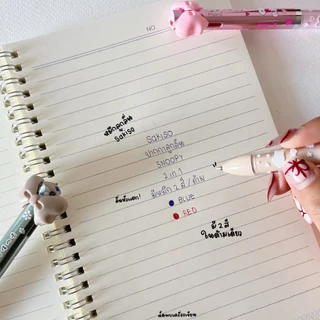 NO.
หมึกลูกลื่น
Sakiso
Sakiso
ปากกาลูกลื่น
SNOOPY
2 in 1
มีหมึก 2 สี / ด้าม
BLUE
RED
มี 2 สี
ในด้ามเดียว